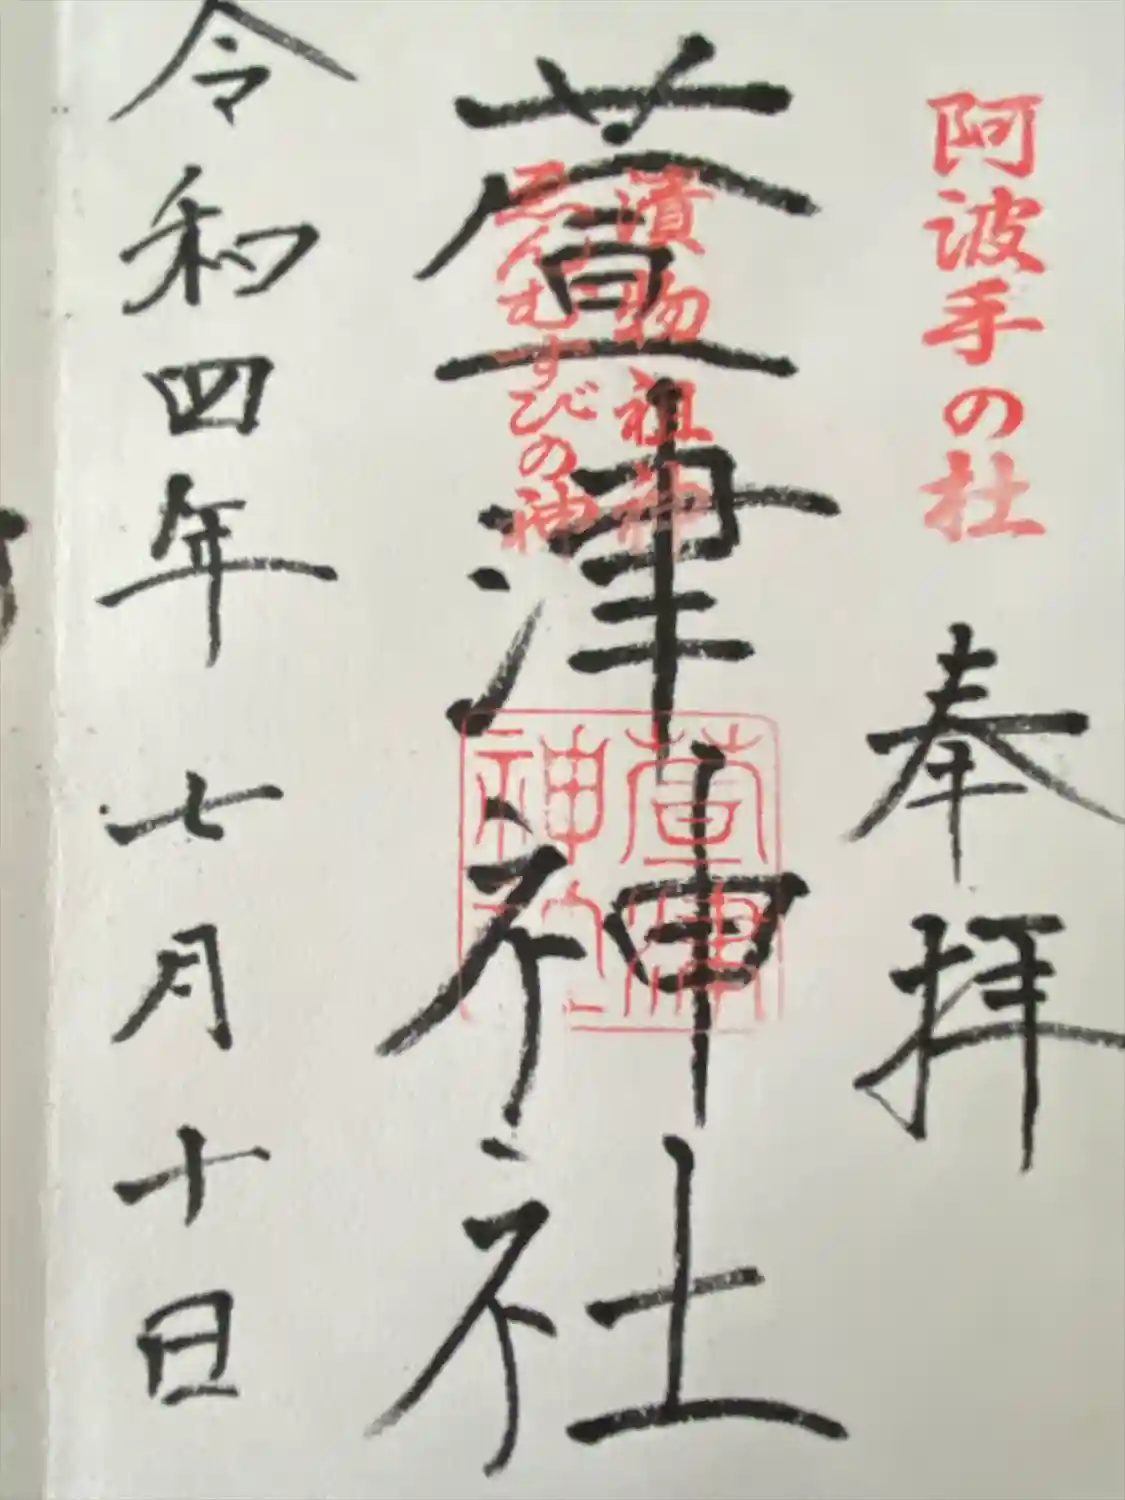 阿波手の杜
奉拝
漬物祖神
ゑんむすびの神
萱津神社
萱津神社
令和四年七月十日